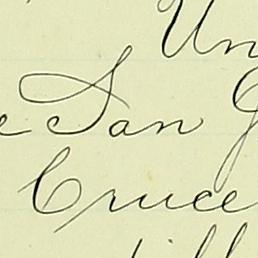 Un
e San J
Cruce